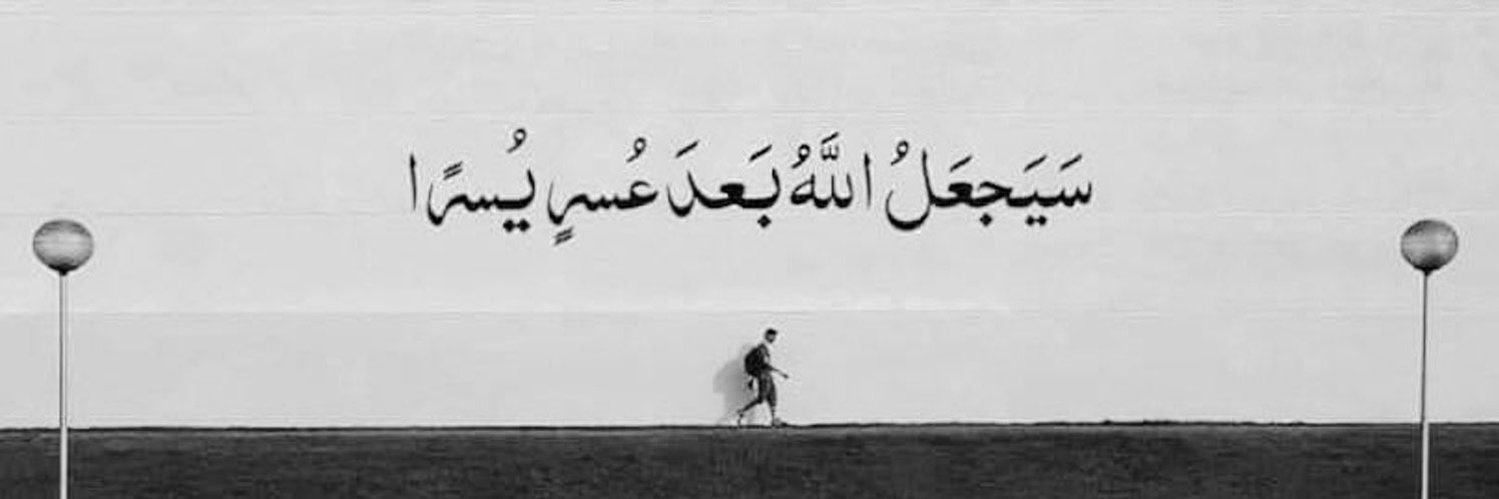 سَيَجعَلُ اللَّهُ بَعدَ عُسرٍ يُسرًا